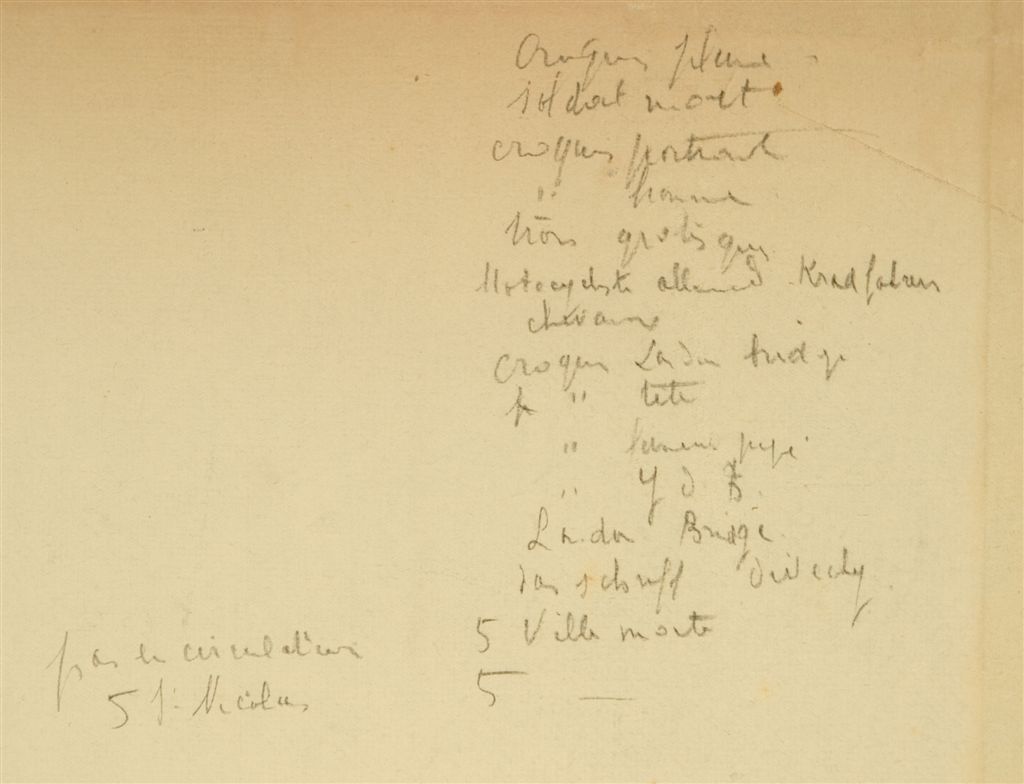 Croquis plume
soldat mort
croquis portrait
" homme
trois grotesques
Motocycliste allemand Kradfahrer
chevaux
croquis London bridge
" tete
" homme pipe
" Y d
London Bridge
das schiff
5 Ville morte
pas en circulation
5 St Nicolas
5 —